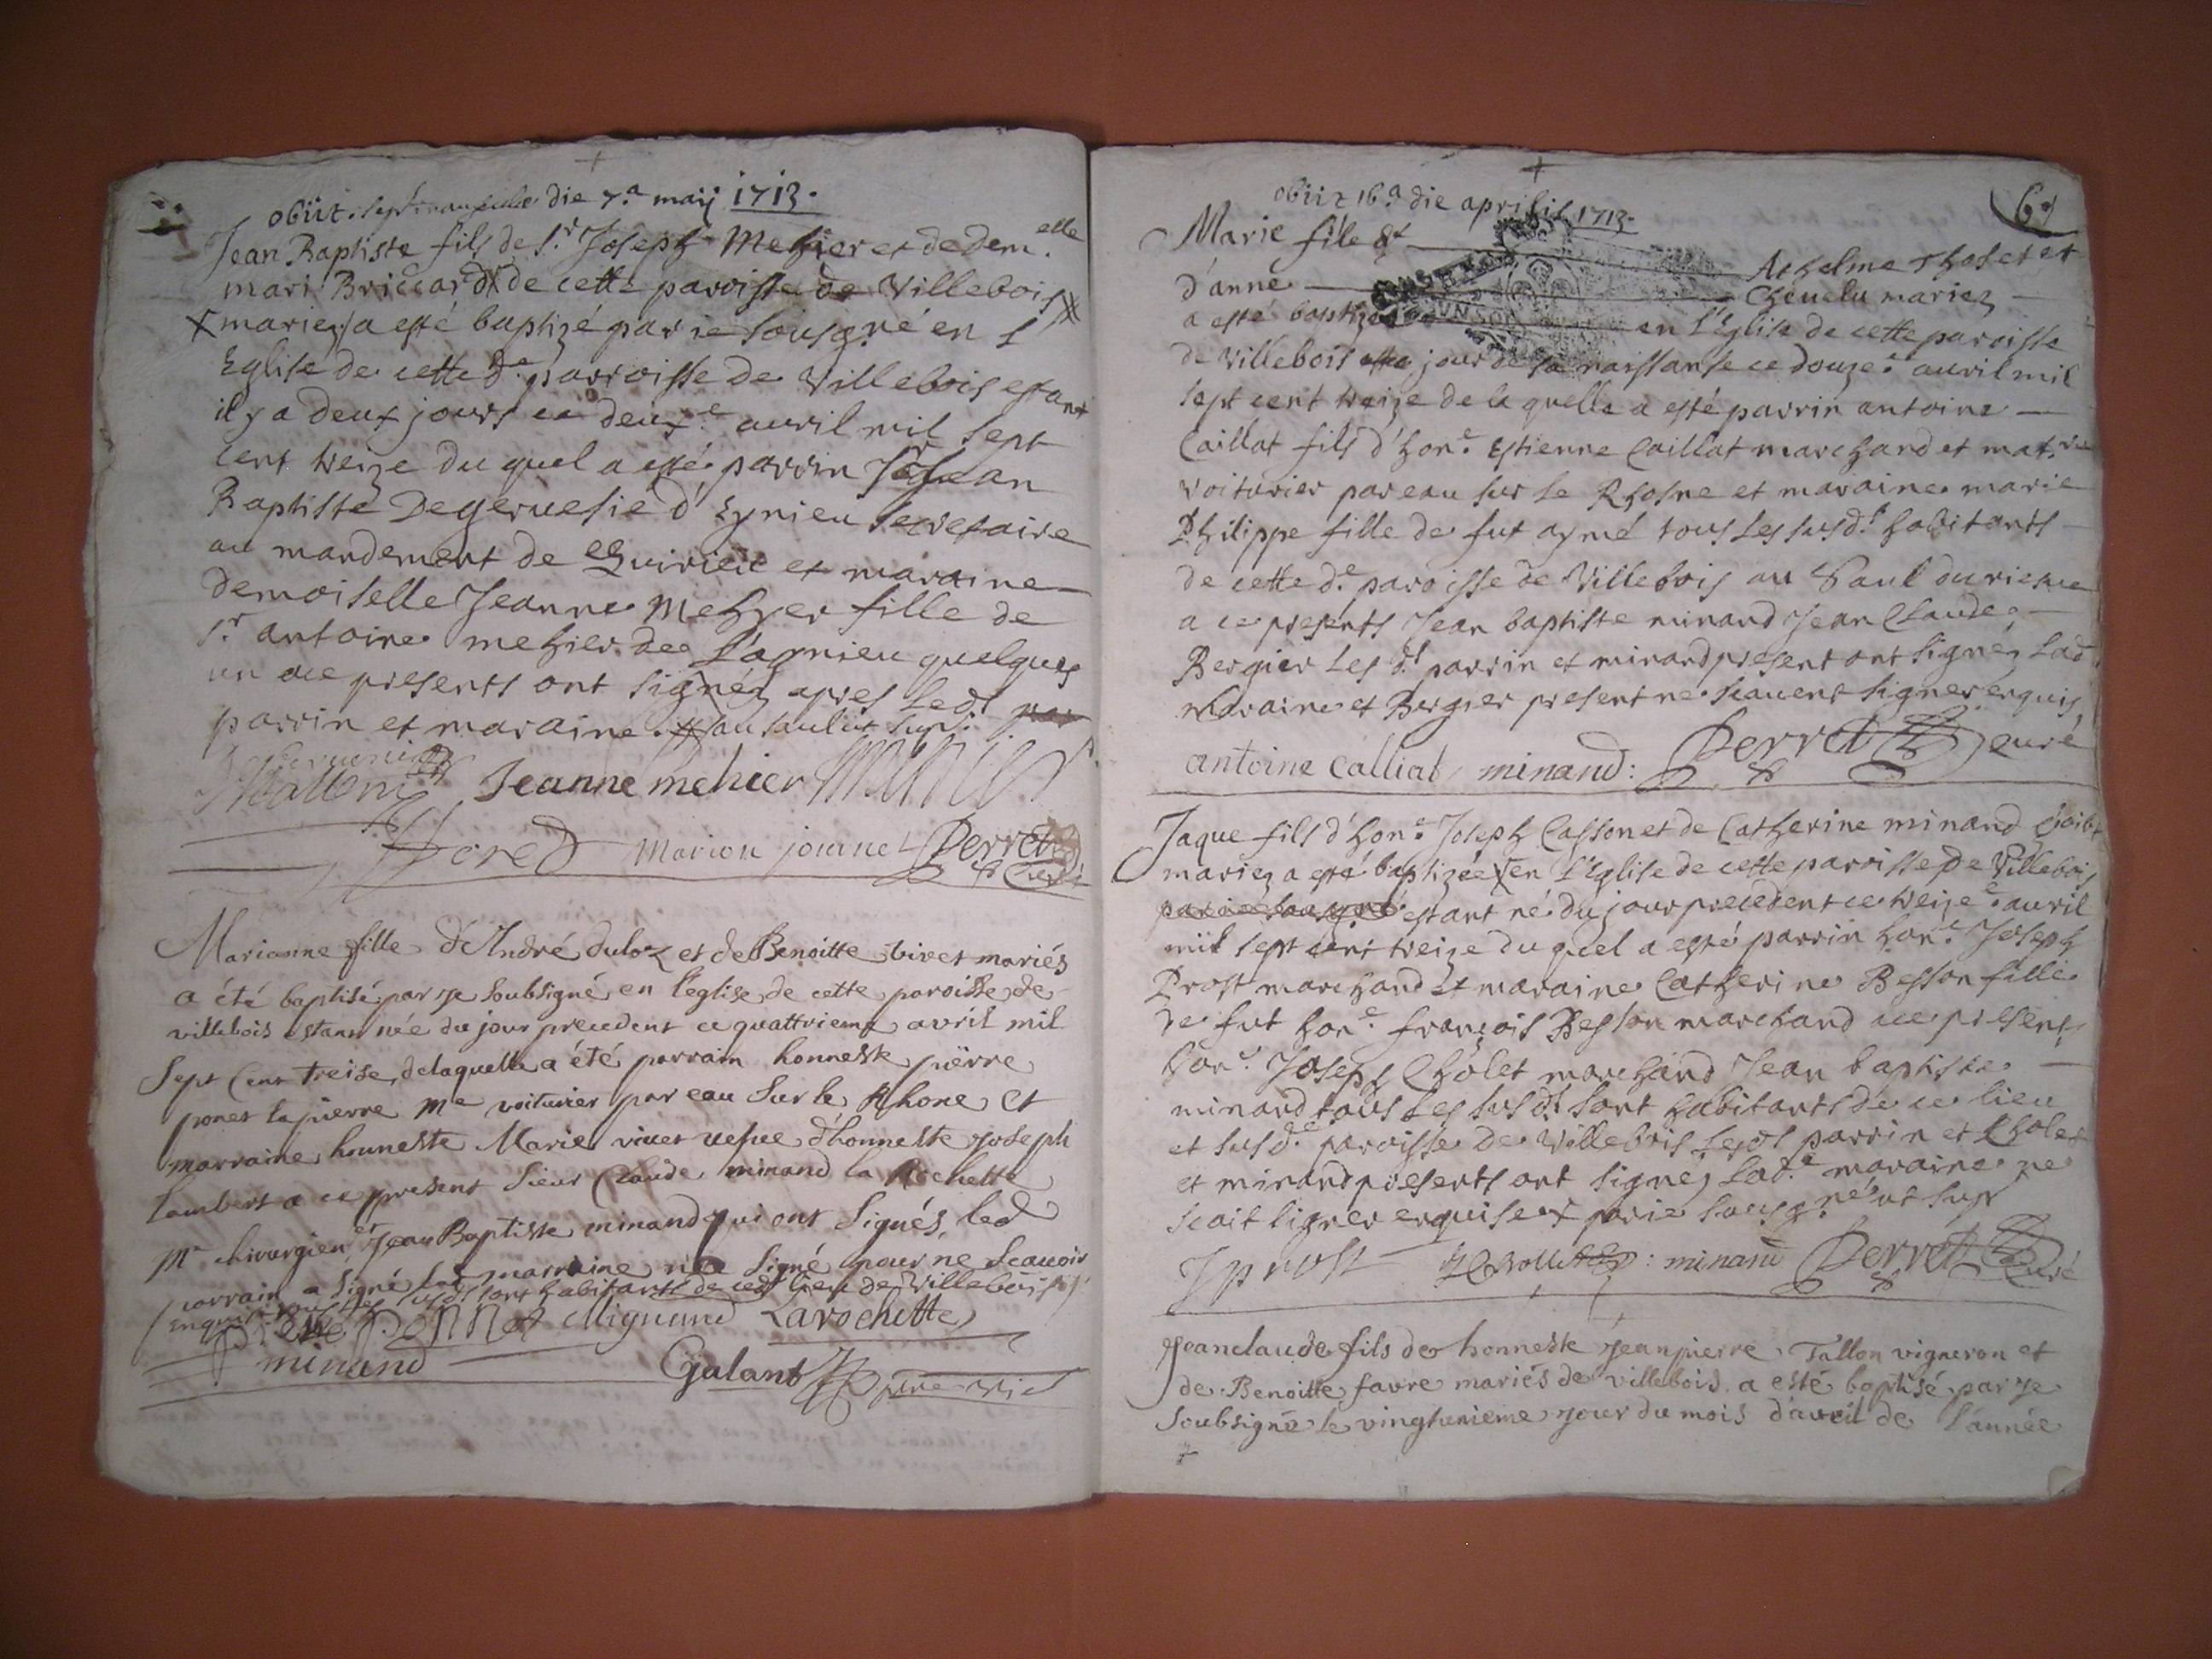 obiit die 7.a maij 1713.
Jean Baptiste fils de S.r Joseph Mehier et de Dem.elle
mari Briccard de cette paroisse de Villebois
mariez a esté baptizé par ie sousg.né en l
Eglise de cette d.e parroisse de Villebois estant
il y a deux jours ce deux.e auril mil sept
cent treize du quel a esté parrin Jean
Baptiste Degeruesie d'Eynieu secretaire
au mandement de Quirieu et maraine
demoiselle Jeanne Mehyer fille de
S.r antoine mehier de Lagnieu quelques
un a ce presents ont signéz apres led.t
parrin et maraine
Jeanne mehier
marion journet Perret
Curé
Marianne fille d'André duloz et de Benoitte vivet mariés
a été baptisé par je soubsigné en l'eglise de cette paroisse de
villebois estant née du jour precedent ce quattrieme avril mil
Sept Cent treise, delaquelle a été parrain honneste pierre
ponet lapierre M.e voiturier par eau sur le Rhone Et
marraine honneste Marie vivet vefve d'honneste joseph
Lambert a ce present Sieur Claude minand la Rochette
M.e chirurgien et Jean Baptiste minand qui ont Signés, led
parrain a Signé lad marraine n'a Signé pour ne Scauoir
enquise tous les susd.ts sont habitants de ced.t lieu de Villebois
pierre ponnet Mignand Larochette
minand Galant
6
obiit 16.a die aprilis 1713.
Marie fille d' Athelme Thoset et
d'anne Cheuelu mariez
a esté baptizée en l'Eglise de cette paroisse
de Villebois jour de sa naissanse ce douze.e auril mil
sept cent treize de la quelle a esté parrin antoine
Caillat fils d'hon.e Estienne Caillat marchand et mat.re
voiturier par eau sur le Rhosne et maraine marie
Philippe fille de fut aymé tous les susd.ts habitants
de cette d.e paroisse de Villebois au Sault
a ce presents Jean baptiste minand Jean Claude
Bergier les d.ts parrin et minand present ont signéz lad
maraine et Bergier present ne scauent signer enquis
antoine Calliat minand: Perret curé
Jaque fils d'hon.e Joseph Casson et de Catherine minand
mariez a esté baptizée en l'Eglise de cette parrisse de Villebois
par ie sousg.né estant né du jour precedent ce treize.e auril
mil sept cent treize du quel a esté parrin hon.e Joseph
Prost marchand et maraine Catherine Besson fille
de fut hon.e françois Besson marchand a ce present
hon.e Joseph Cholet marchand Jean baptiste
minand tous les susd.ts sont habitants de ce lieu
et susd.e paroisse de Villebois lesd.ts parrin et Cholet
et minand presents ont signéz lad.e maraine ne
scait signer enquise et par ie sousg.né ut sup
J prost : minand Perret Curé
Jeanclaude fils de honneste Jeanpierre Tallon vigneron et
de Benoitte favre mariés de villebois a esté baptisé par je
Soubsigné le vingtunieme jour du mois d'avril de l'année